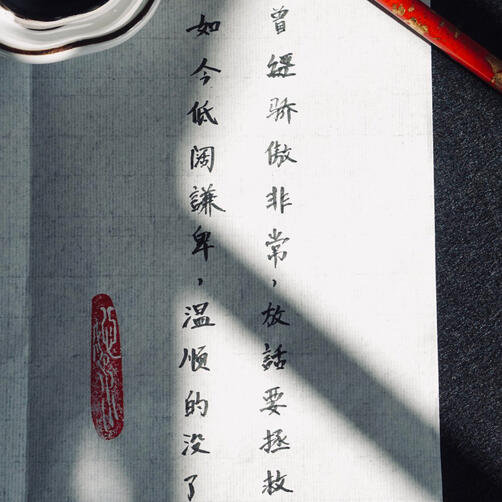 曾經骄傲非常，放話要拯救
如今低阔謙卑，温顺的没了